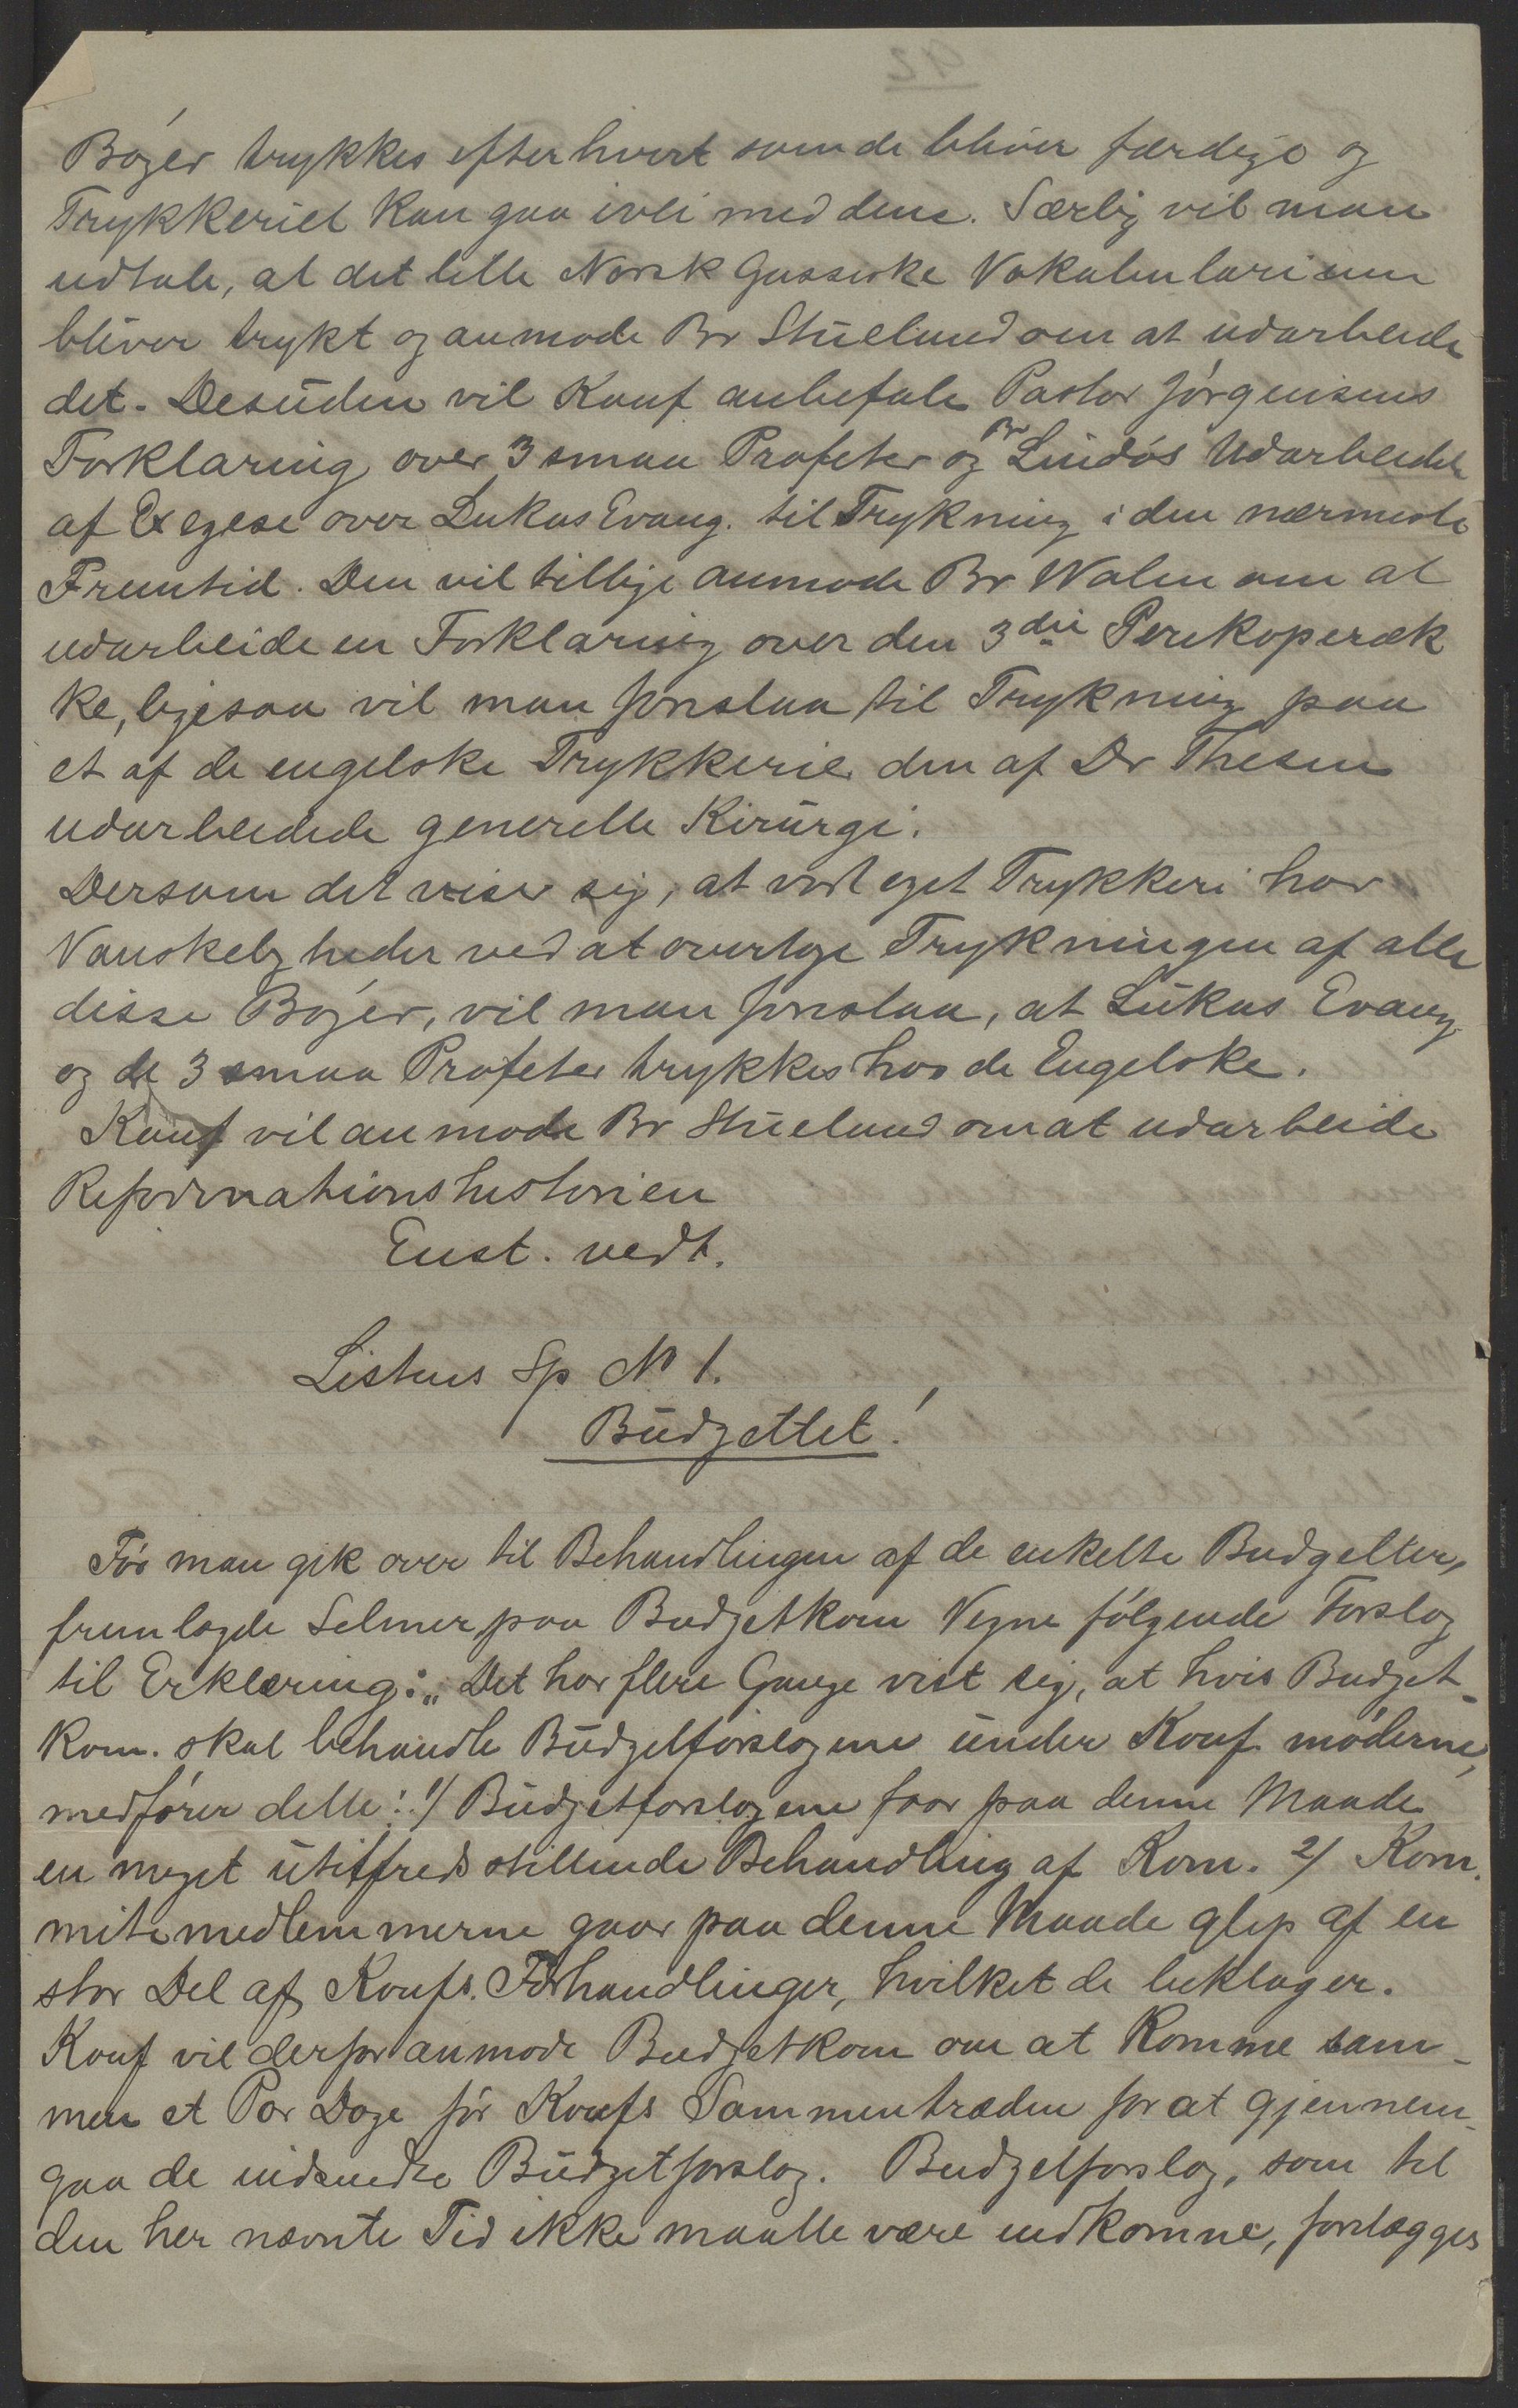 Bøger trykkes efterhvert som de bliver færdige og
Trykkeriet kan gaa ivei med dem. Særlig vil man
udtale, at det lille Norsk Gassiske Vokabularium
bliver trykt og anmode Br Stuelund om at udarbeide
det. Desuden vil Konf anbefale Pastor Jørgensens
Forklaring over 3 smaa Profeter og Br Lindøs Udarbeidelse
af Exegese over Lukas Evang. til Trykning i den nærmeste
Fremtid. Den vil tillige anmode Br Walen om at
udarbeide en Forklaring over den 3die Perikoperæk
ke, ligesaa vil man foreslaa til Trykning paa
et af de engelske Trykkerier den af Dr Thesen
udarbeidede generelle Kirurgi.
Dersom det viser sig, at vort eget Trykkeri har
Vanskeligheder ved at overtage Trykningen af alle
disse Bøger, vil man foreslaa, at Lukas Evang
og de 3 smaa Profeter trykkes hos de Engelske.
Konf vil anmode Br Stuelund om at udarbeide
Reformationshistorien
Enst. vedt.
Listens Sp No 1.
Budgettet!
Før man gik over til Behandlingen af de enkelte Budgetter,
fremlagde Selmer paa Budgetkom Vegne følgende Forslag
til Erklæring: „Det har flere Gange vist sig, at hvis Budget-
kom. skal behandle Budgetforslagene under Konf møderne,
medfører dette: 1/ Budgetforslagene faar paa denne Maade
en meget utilfredsstillende Behandling af Kom. 2/ Kom.
mitemedlemmerne gaar paa denne Maade glip af en
stor Del af Konfs. Forhandlinger, hvilket de beklager.
Konf vil derfor anmode Budgetkom om at komme sam-
men et Par Dage før Konfs Sammentræden for at gjennem-
gaa de indsendte Budgetforslag. Budgetforslag, som til
den her nævnte Tid ikke maatte være indkomne, forelægges